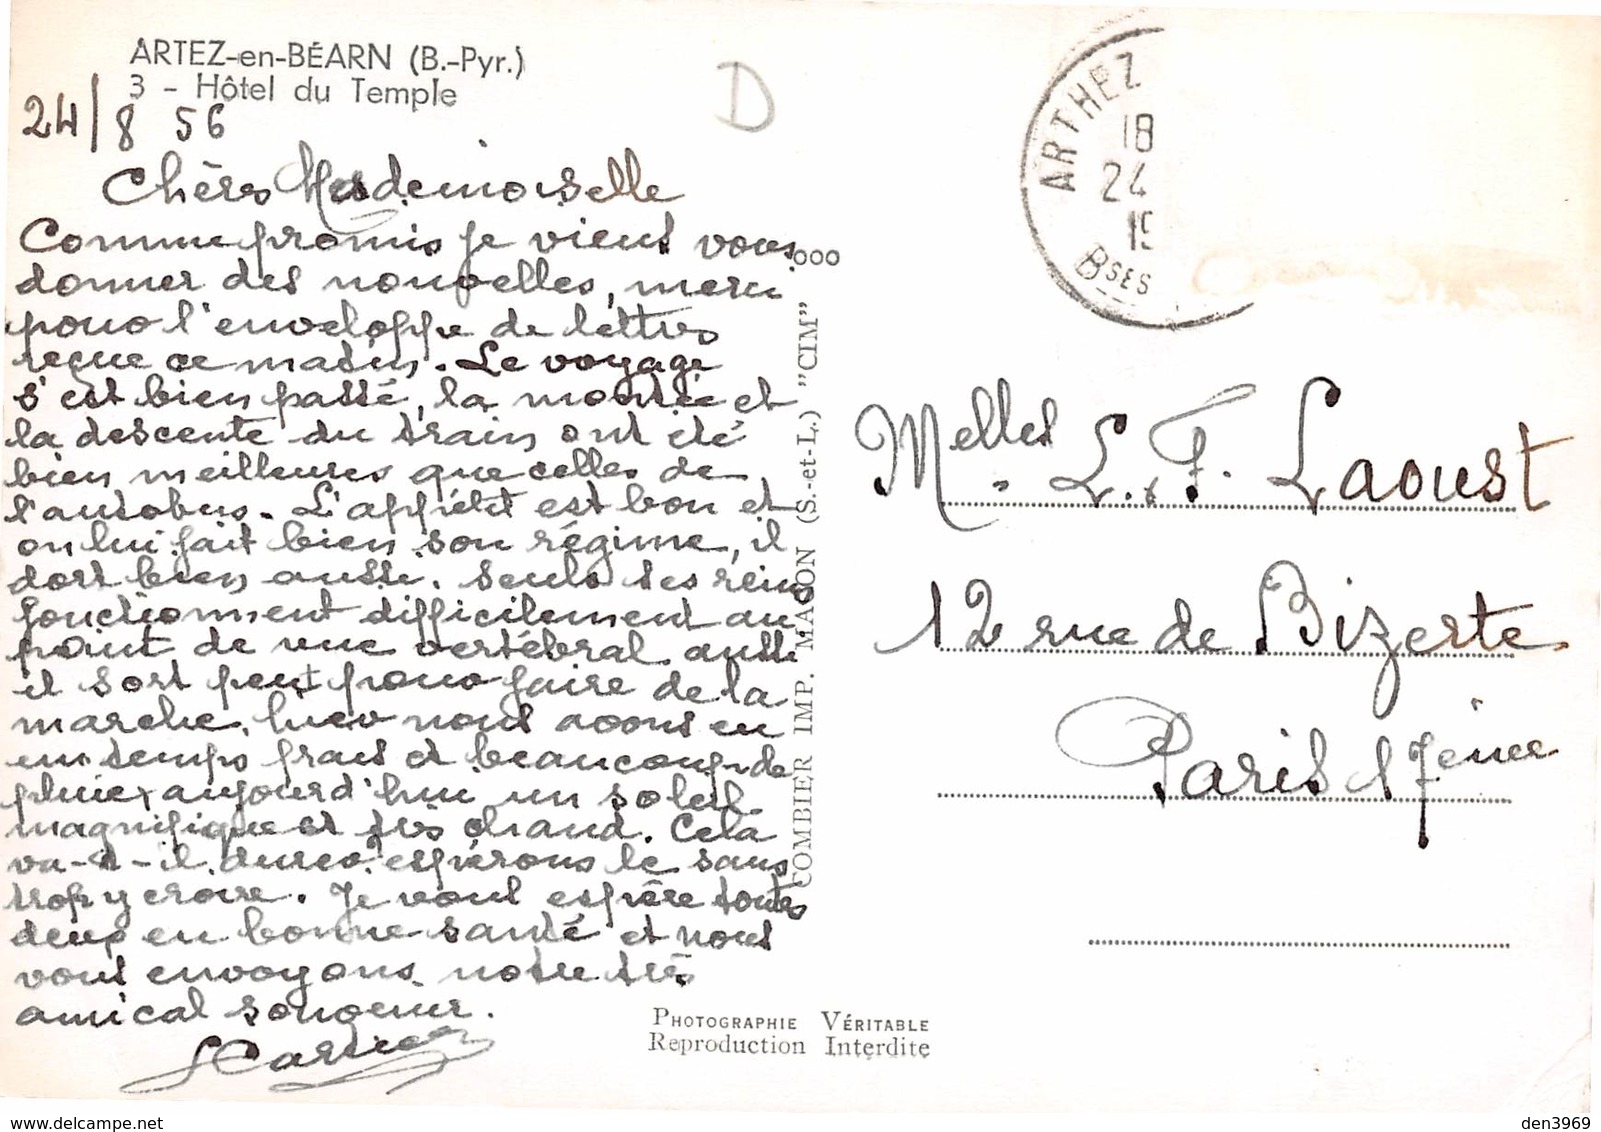 ARTEZ-en-BÉARN (B.-Pyr.)
3 - Hôtel du Temple
24/8 56
D
Chères Mesdemoiselle
Comme promis je viens vous
donner des nouvelles, merci
pour l'enveloppe de lettres
reçue ce matin. Le voyage
s'est bien passé, la montée et
la descente du train ont été
bien meilleures que celles de
l'autobus. L'appétit est bon et
on lui fait bien son régime, il
dort bien aussi. Seuls ses reins
fonctionnent difficilement au
point de vue vertébral aussi
il sort peu pour faire de la
marche. hier nous avons eu
un temps frais et beaucoup de
pluie, aujourd'hui un soleil
magnifique et très chaud. Cela
va-t-il durer? espérons le sans
trop y croire. Je vous espère toutes
deux en bonne santé et nous
vous envoyons notre très
amical souvenir.
COMBIER IMP. MACON (S.-et-L.) "CIM"
ARTHEZ
18
24
19
Bses
Melles L. F. Laoust
12 rue de Bizerte
Paris 17eme
PHOTOGRAPHIE VÉRITABLE
Reproduction Interdite
den3969